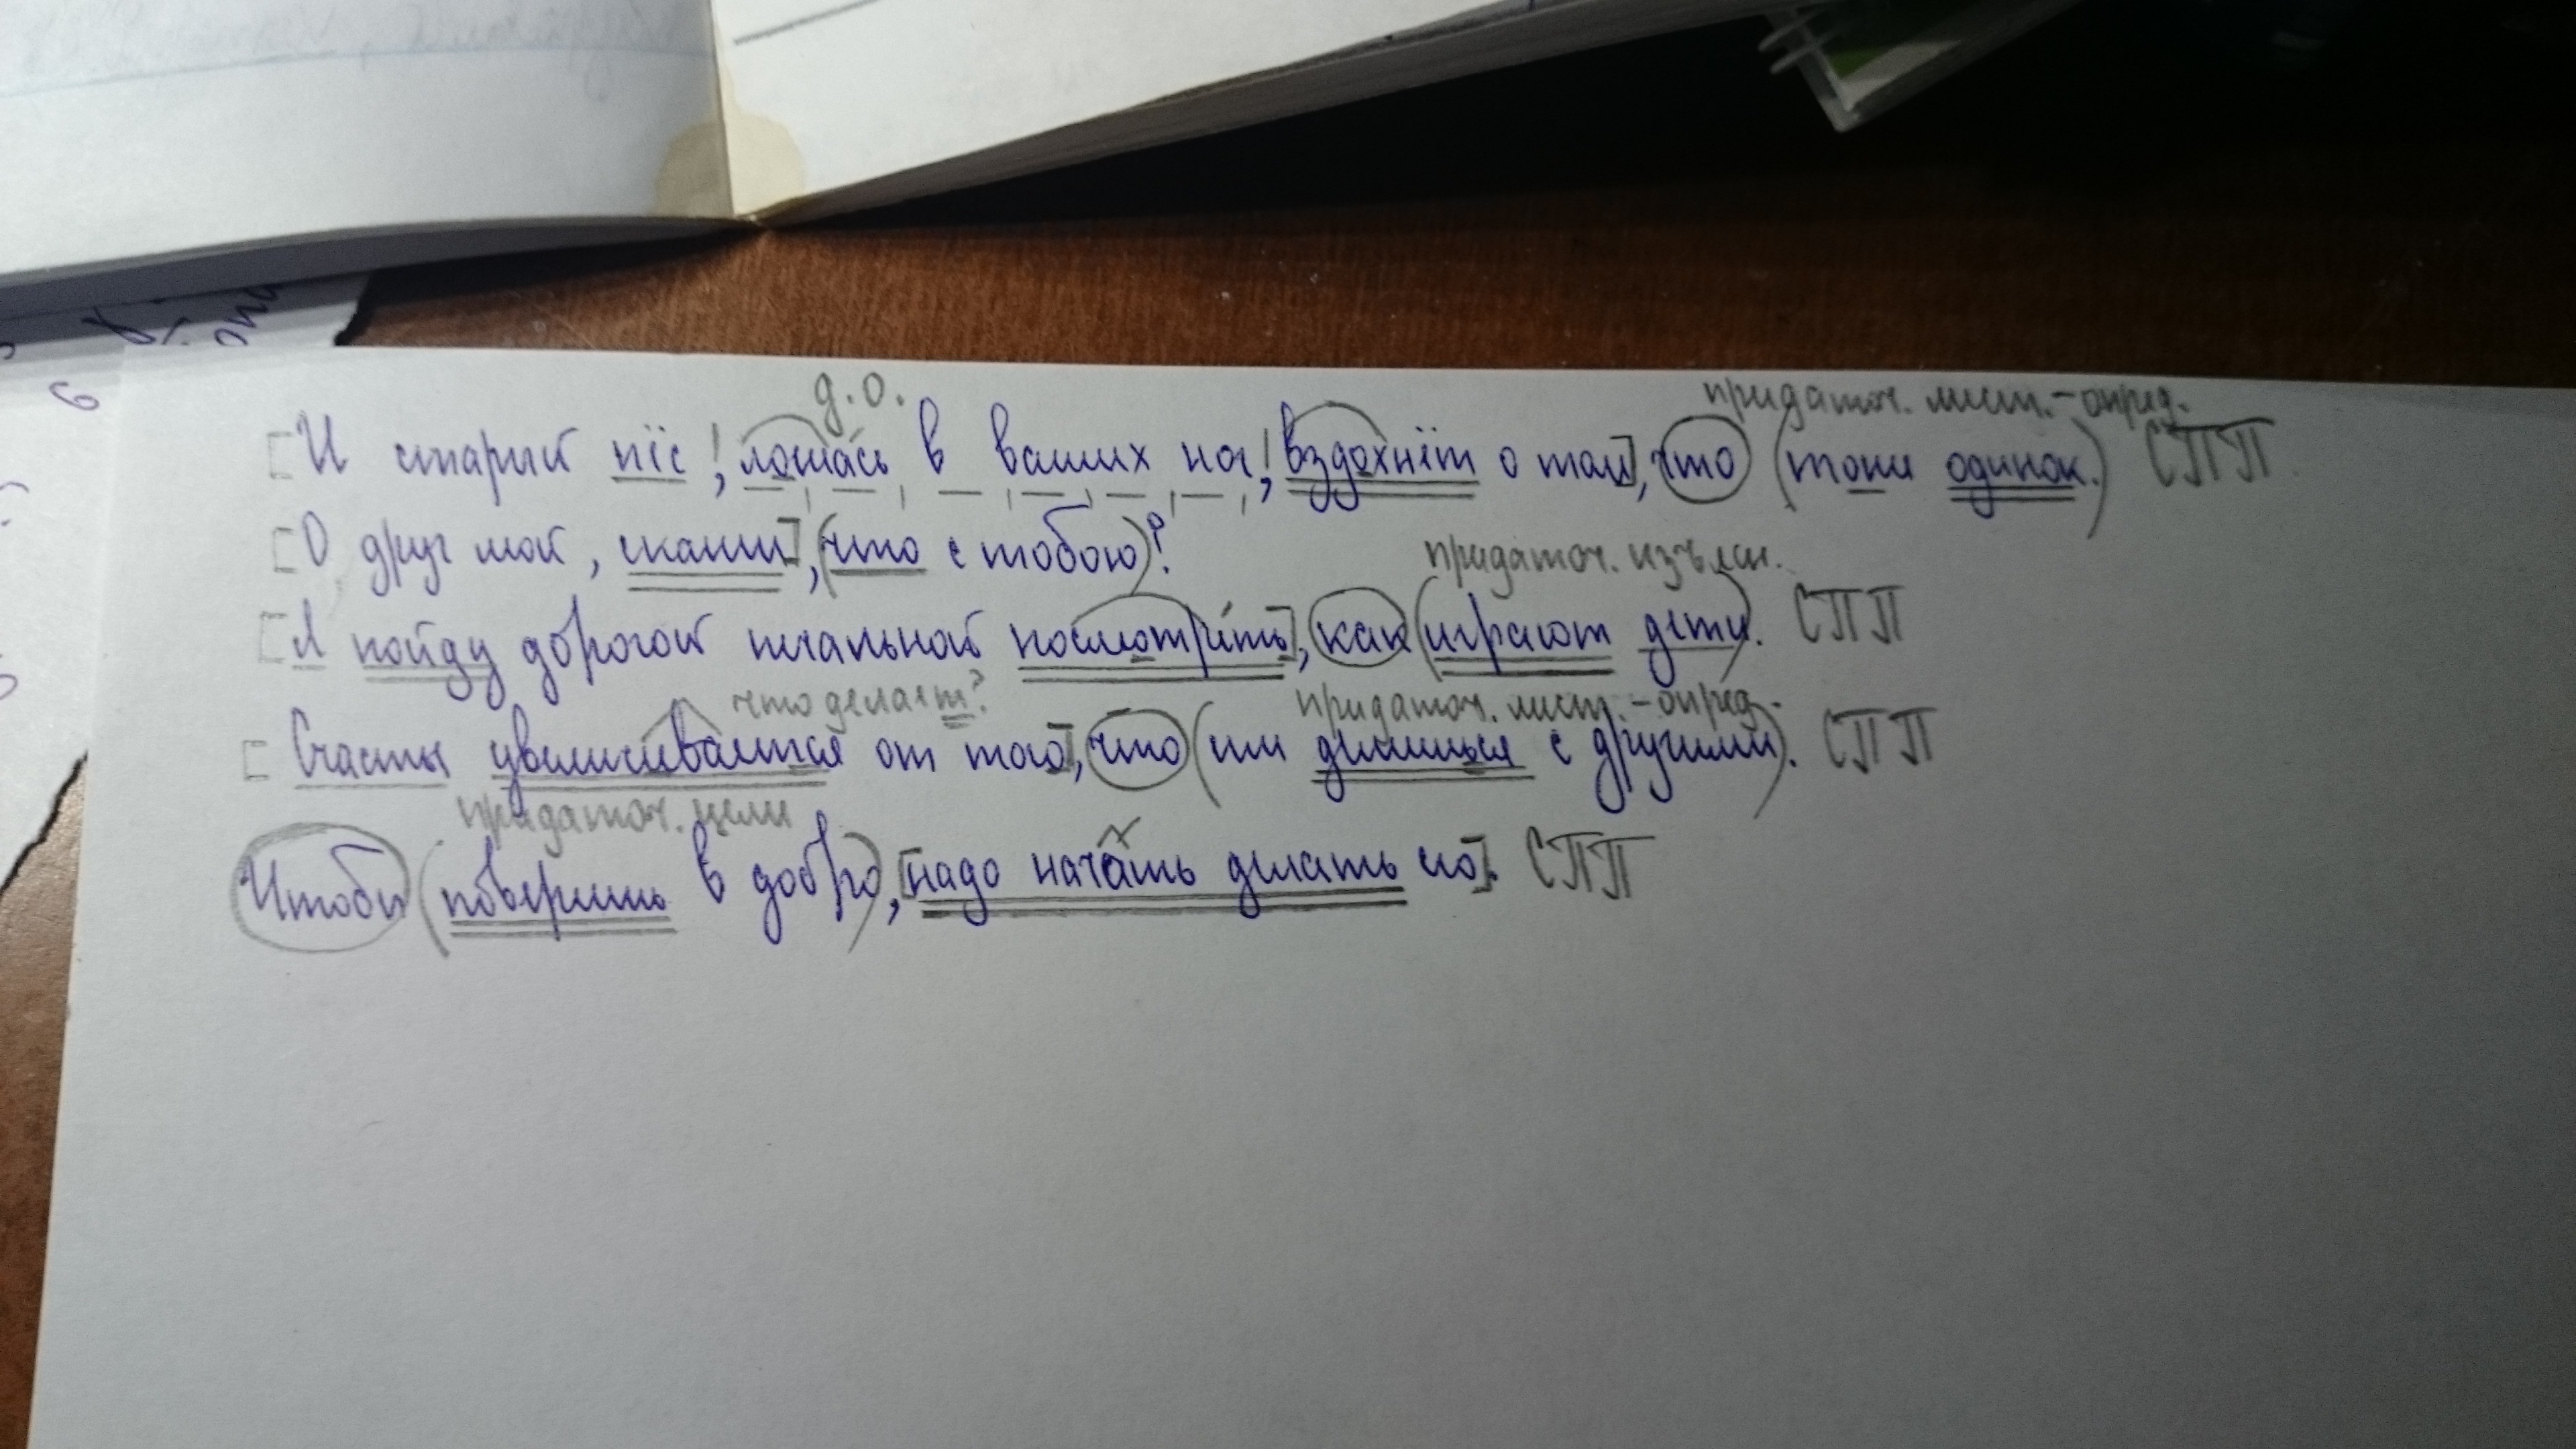 д.о. придаточ. мест.-опред.
[И старый пёс, ложась в ваших ног, вздохнёт о том], что (тоже одинок.) СПП
[О друг мой, скажи], (что с тобою)?
придаточ. изъясн.
[Я пойду дорогой печальной посмотреть], как (играют дети). СПП
что делает? придаточ. мест.-опред.
[Счастье увеличивается от того], что (им делишься с другими). СПП
придаточ. цели
Чтобы (поверить в добро), [надо начать делать его]. СПП